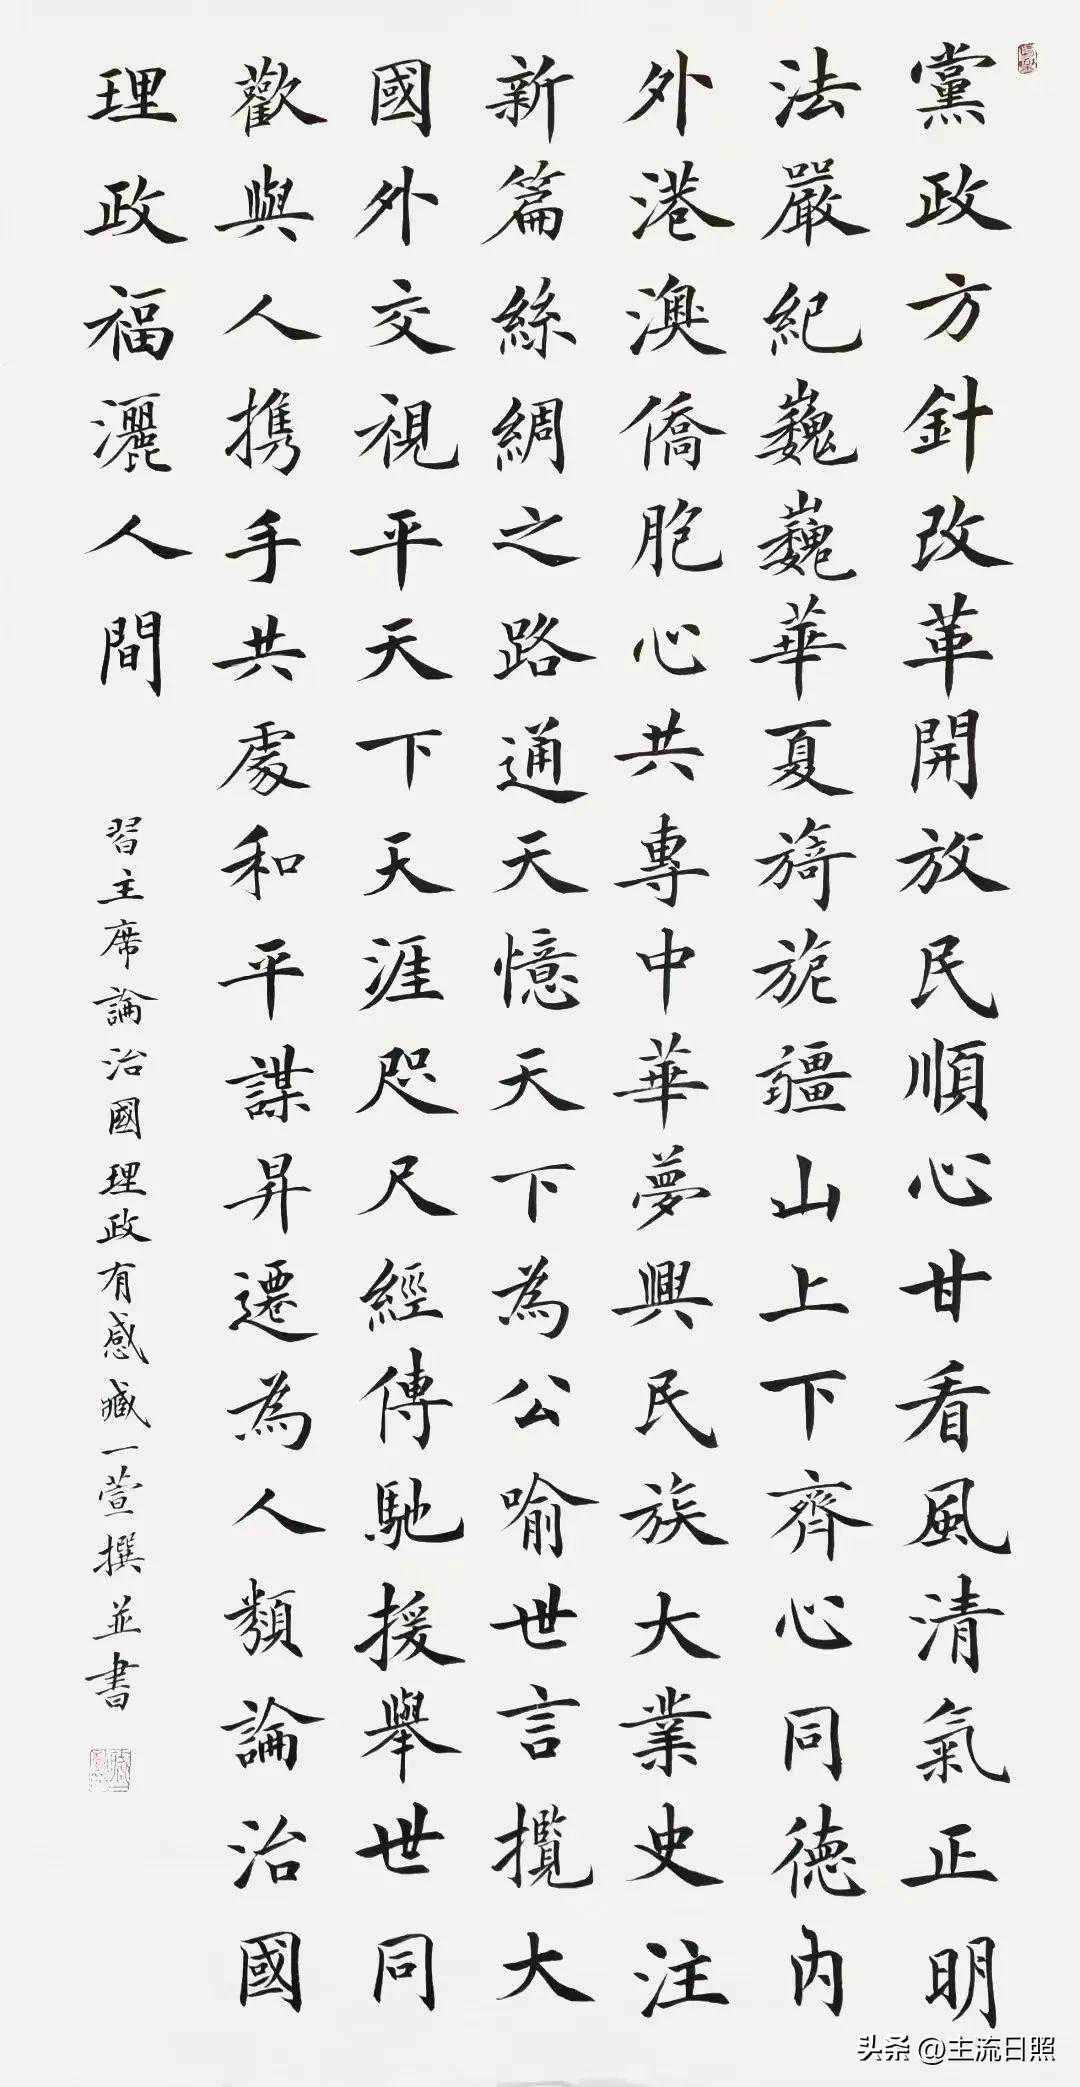 黨政方針改革開放民順心甘看風清氣正明
法嚴紀巍巍華夏旖旎疆山上下齊心同德内
外港澳僑胞心共專中華夢興民族大業史注
新篇絲綢之路通天憶天下為公喻世言攬大
國外交視平天下天涯咫尺經傳馳援舉世同
歡與人携手共處和平謀昇遷為人類論治國
理政福灑人間
習主席論治國理政有感臧一萱撰並書
头条 @主流日照